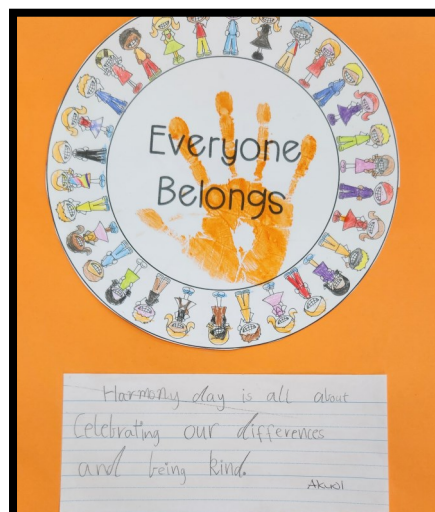 Everyone
Belongs
Harmony day is all about
Celebrating our differences
and being kind.